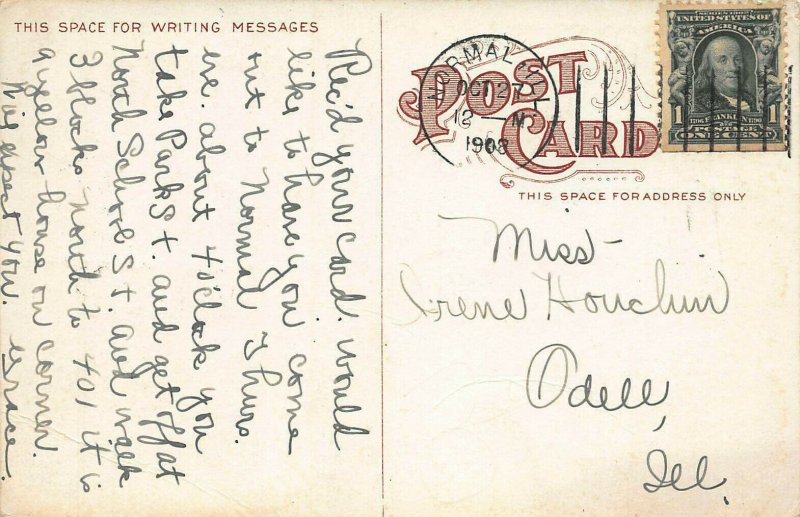 THIS SPACE FOR WRITING MESSAGES
Rec'd your card. would
like to have you come
out to Normal Thurs.
eve. about 4 o'clock you
take Park St. and get off at
North School St. and walk
3 blocks north to 401 it is
a yellow house on corner.
Will expect you. Grace.
POST CARD
NORMAL, ILL.
OCT 27
12 - M
1908
SERIES 1902
UNITED STATES OF
AMERICA
1706 FRANKLIN 1790
POSTAGE
1 ONE CENT 1
THIS SPACE FOR ADDRESS ONLY
Miss
Irene Houchin
Odell,
Ill.